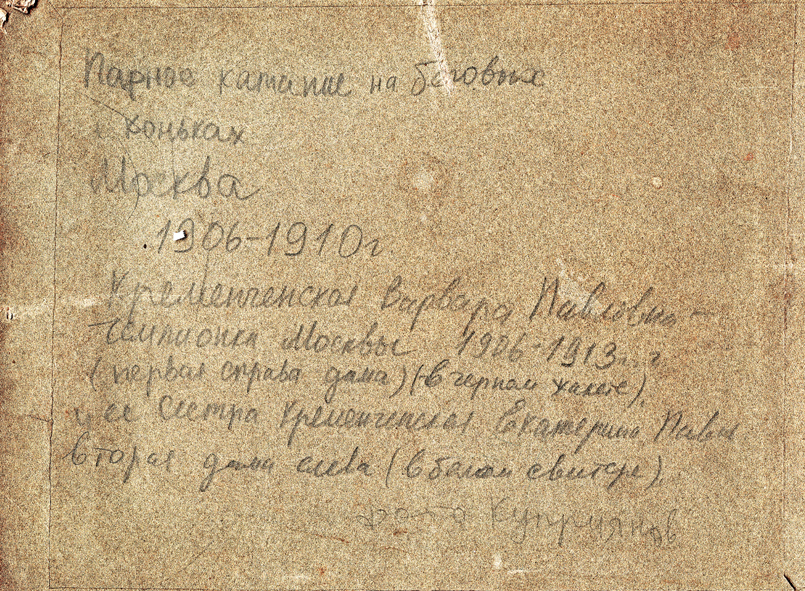 Парное катание на беговых
коньках
Москва
1906-1910г
Кременченская Варвара Павловна -
чемпионка Москвы 1906-1913 г.
(первая справа дама) (в черном жакете)
и ее сестра Кременченская Екатерина Павл
вторая дама слева (в белом свитере).
фото Куприянов